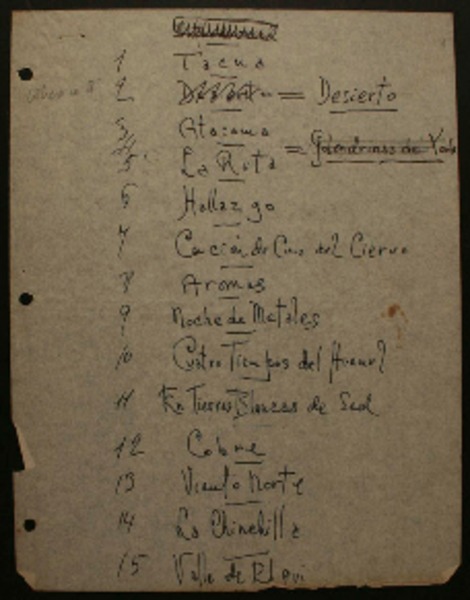 1 Tacna
2 = Desierto
3 Atacama
5 La Ruta =
6 Hallazgo
7 Canción de Cuna del Ciervo
8 Aromas
9 Noche de Metales
10 Cuatro Tiempos del Huemul
11 En Tierras Blancas de Sed
12 Cobre
13 Viento Norte
14 La Chinchilla
15 Valle de Elqui